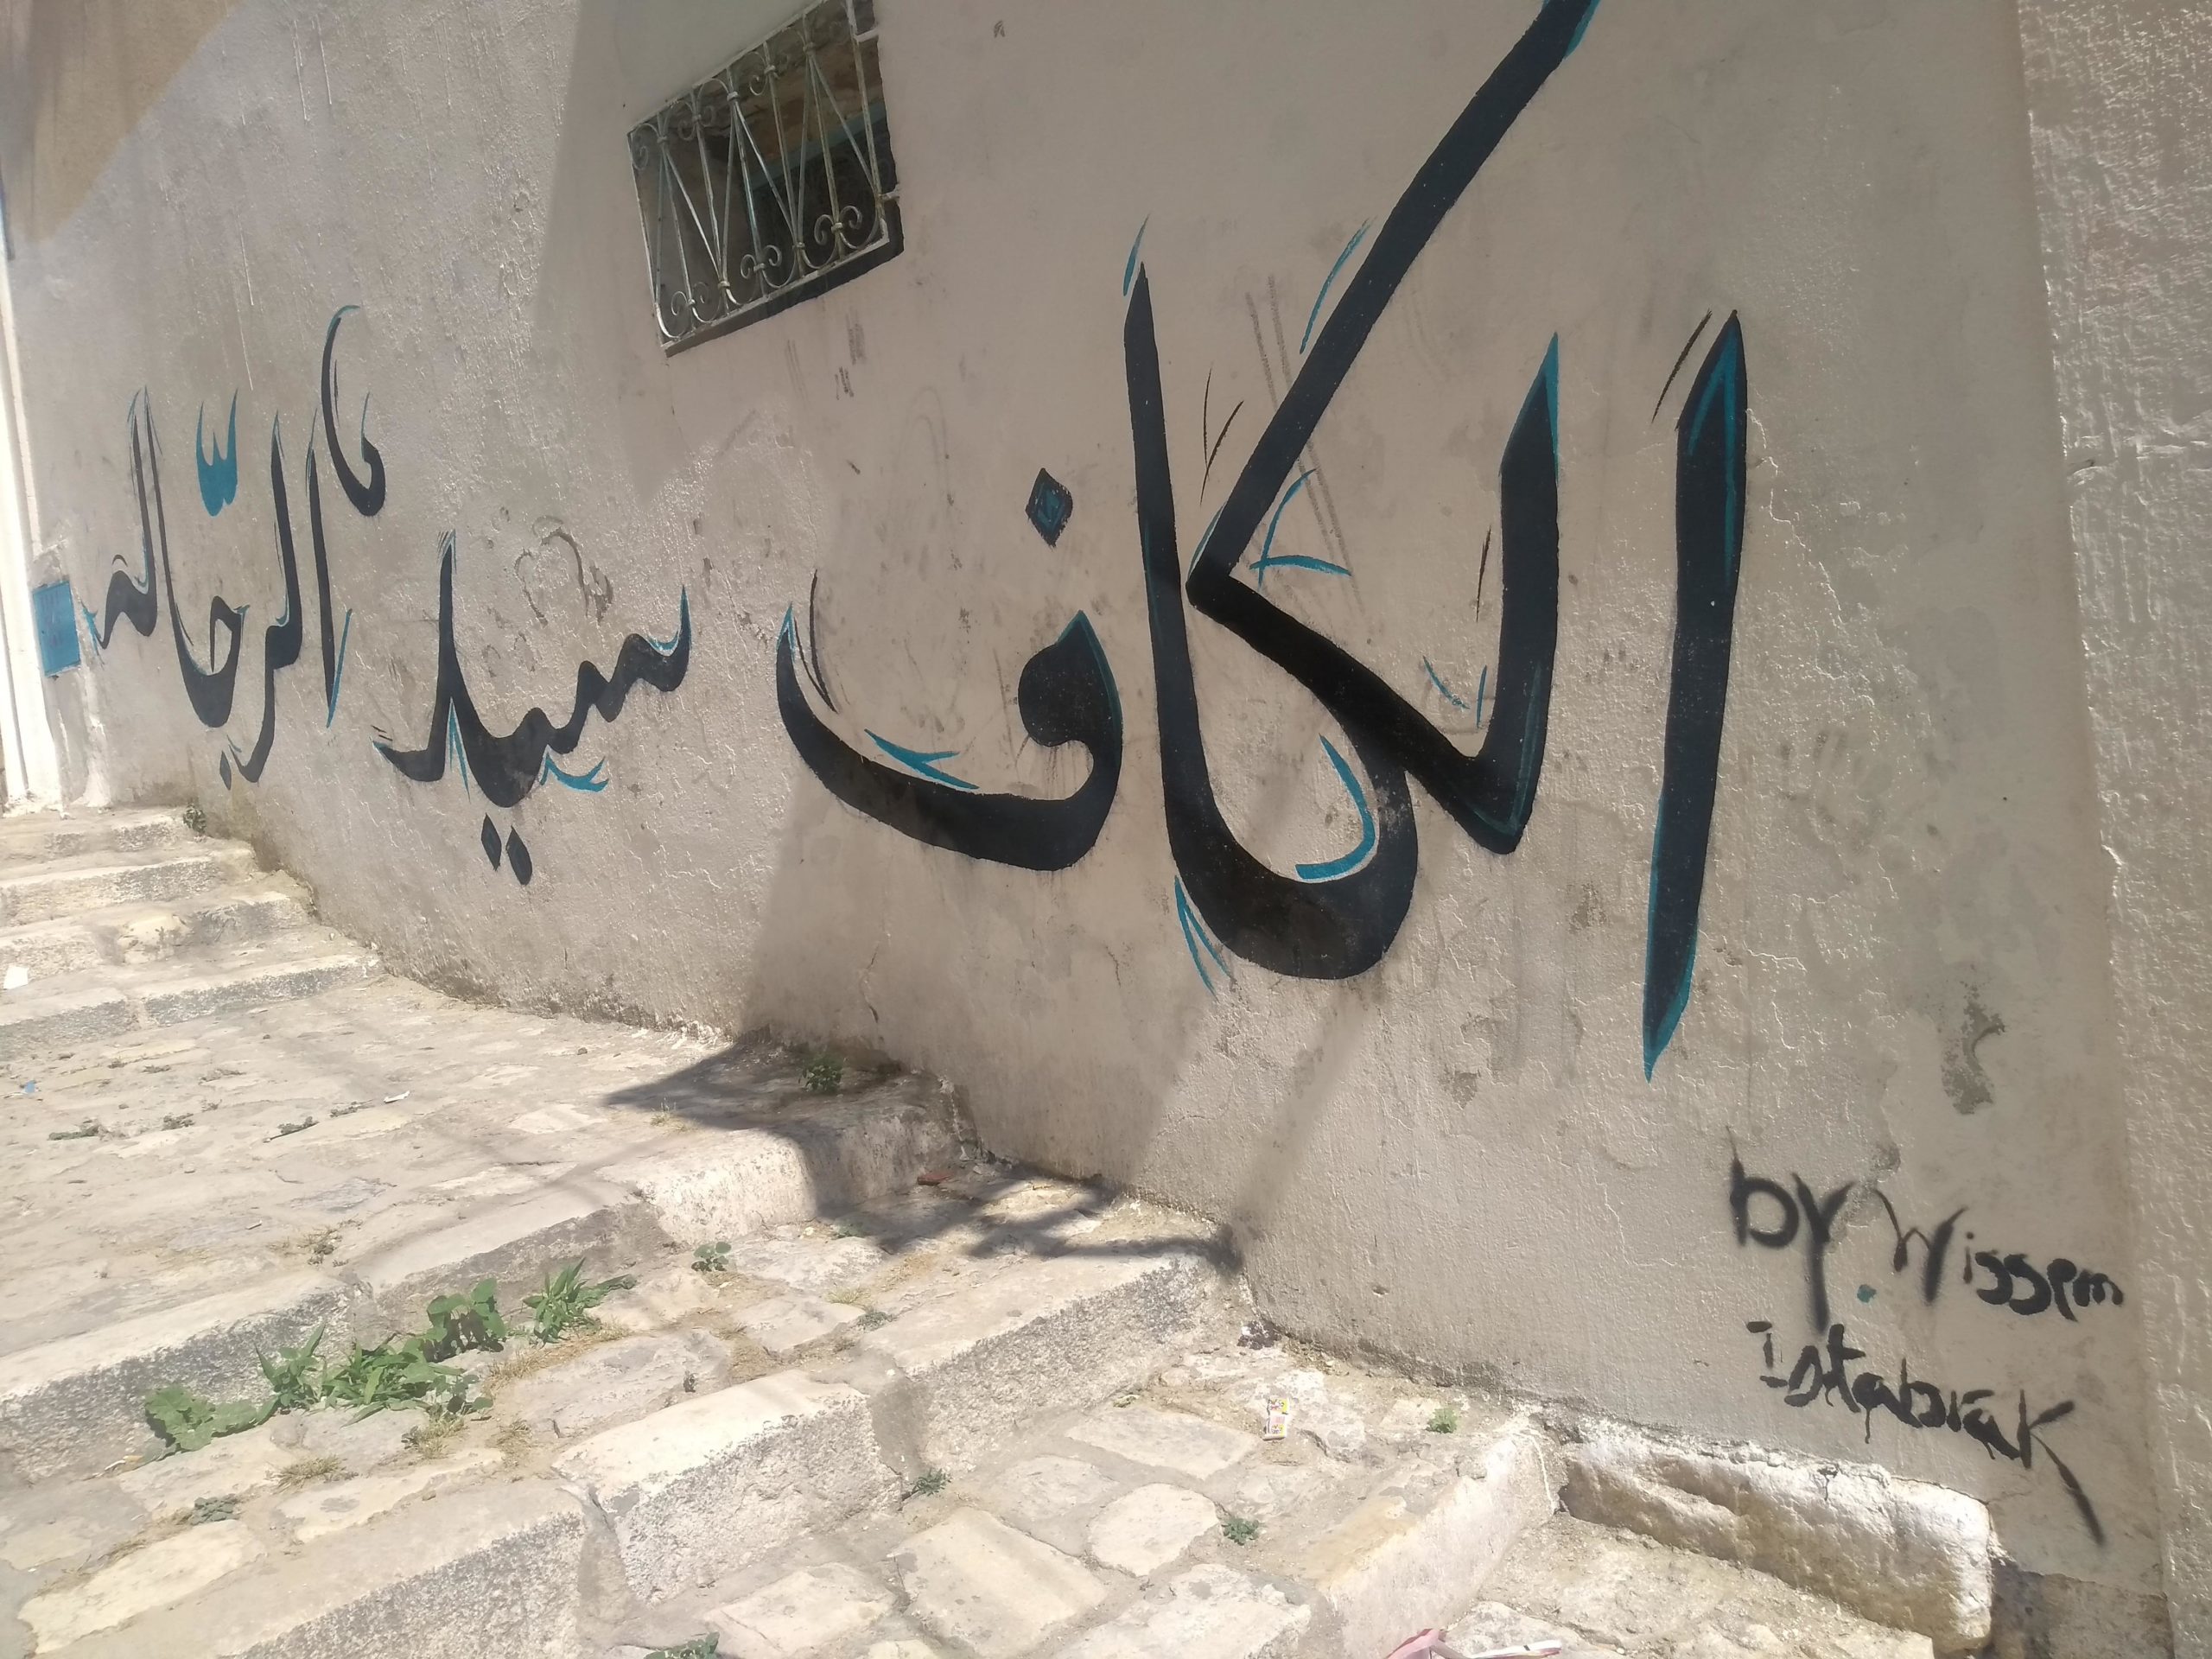 الكاف سيد الرجّاله
by. Wissem
Istabrak